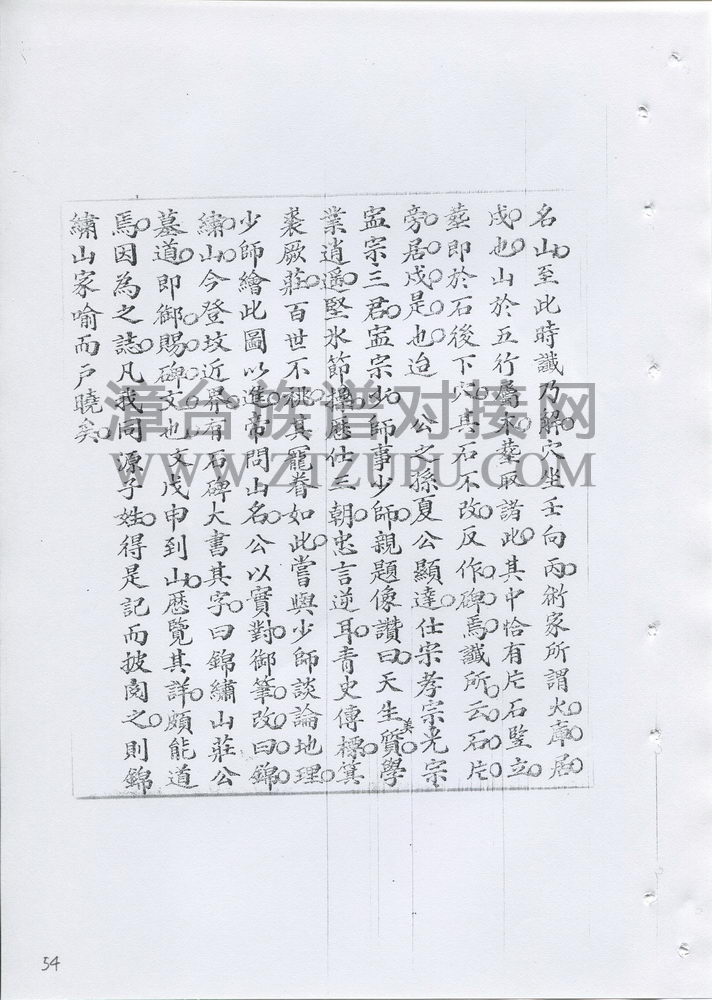 名山至此時讖乃解穴坐壬向丙術家所謂火庫居
戌也山於五行屬木墓取諸此其中恰有片石豎立
塟即於石後下穴其石不改反作碑焉讖所云石片
旁居戌是也迨　公之孫夏公顯達仕宗孝宗光宗
寍宗三君寍宗少師事少師親題像讚曰天生美質學
業逍遥堅氷節操歷仕三朝忠言逆耳青史傳標箕
裘厥莊百世不祧其寵眷如此嘗與少師談論地理
少師繪此圖以進帝問山名公以實對御筆改曰錦
繡山今登坟近界有石碑大書其字曰錦繡山莊公
墓道即御賜碑文也文戊申到山歷覽其詳頗能道
焉因為之誌凡我同源子姓得是記而披閱之則錦
繡山家喻而戶曉矣
漳台族谱对接网
WWW.ZTZUPU.COM
54